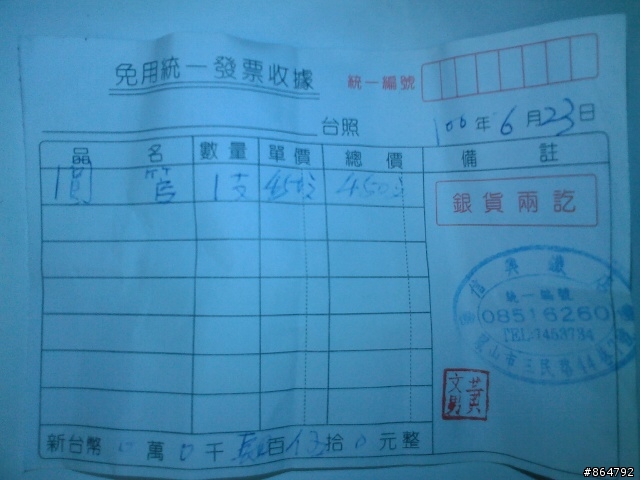 免用統一發票收據
統一編號
台照
100年6月23日
品名 數量 單價 總價 備註
管 1支 450 450
銀貨兩訖
統一編號
08516260
TEL:7453734
山市三民
文
黃
新台幣 0萬0千 百 拾0元整
#864792